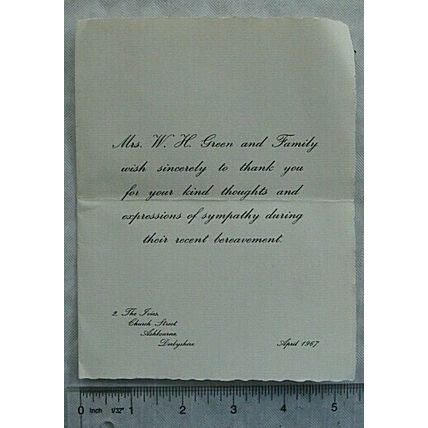 Mrs. W. H. Green and Family
wish sincerely to thank you
for your kind thoughts and
expressions of sympathy during
their recent bereavement.
2, The Ivies,
Church Street,
Ashbourne,
Derbyshire.
April 1967
0 Inch 1/32" 1 2 3 4 5